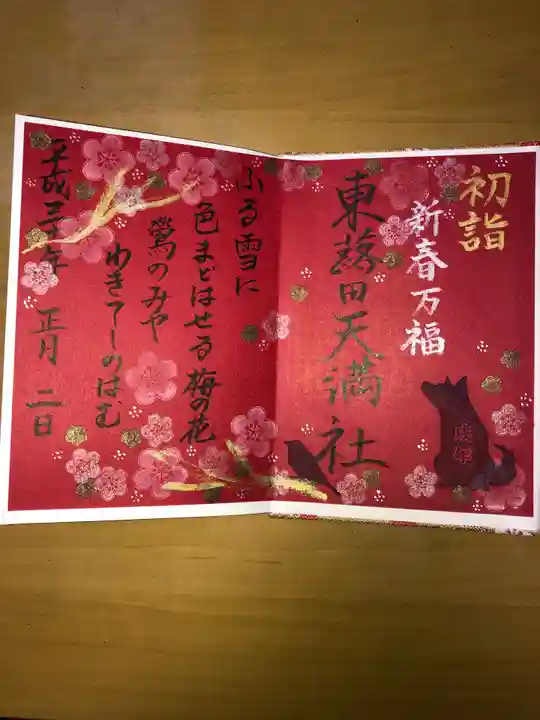 初詣
新春万福
戌年
東蕗田天満社
ふる雪に
色まどはせる梅の花
鶯のみや
わきてしのはむ
平成三十年 正月 二日